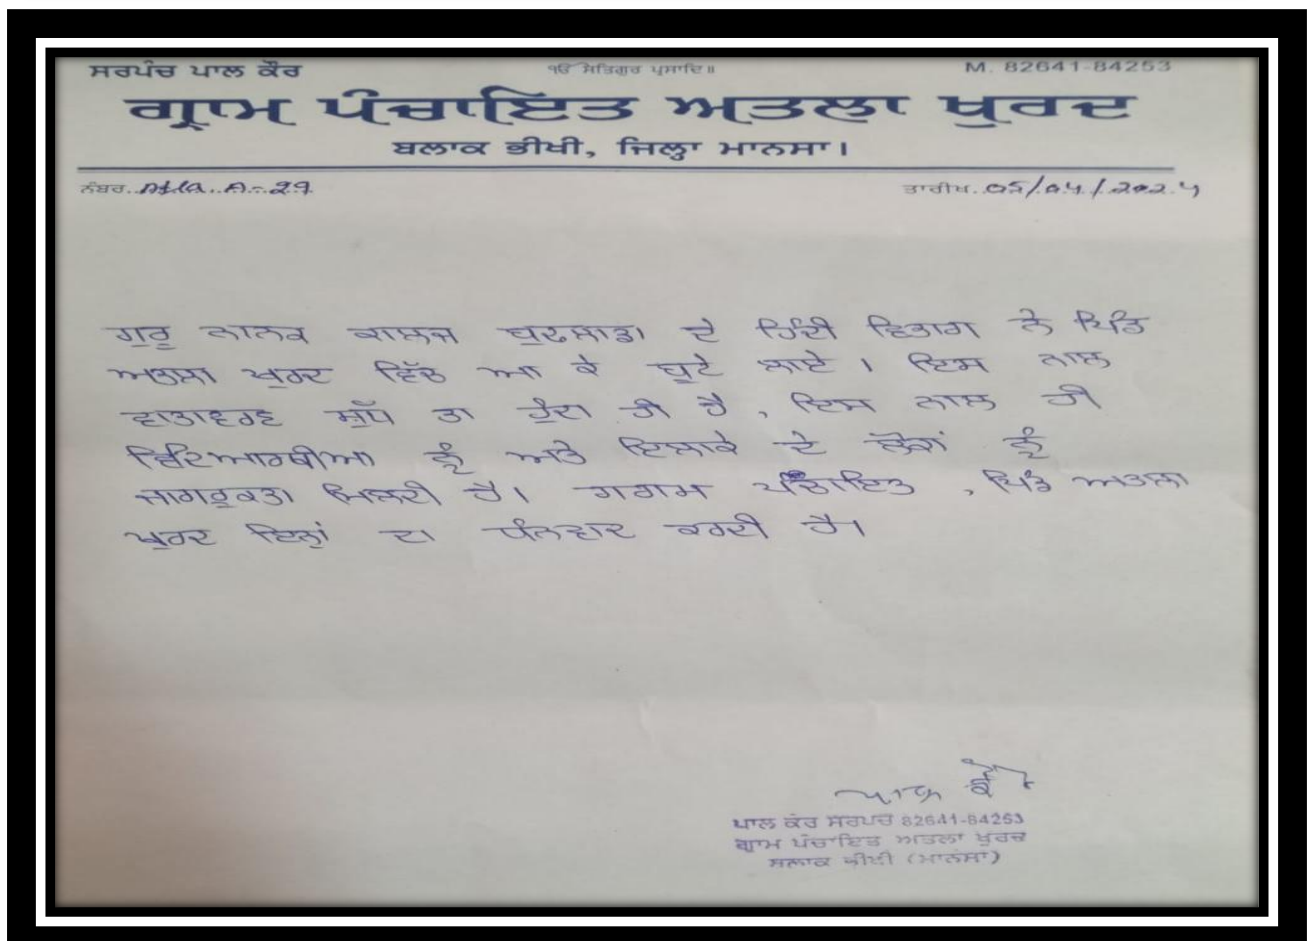 ਸਰਪੰਚ ਪਾਲ ਕੌਰ
ੴ ਸਤਿਗੁਰ ਪ੍ਰਸਾਦਿ॥
M. 82641-84253
ਗ੍ਰਾਮ ਪੰਚਾਇਤ ਅਤਲਾ ਖੁਰਦ
ਬਲਾਕ ਭੀਖੀ, ਜਿਲ੍ਹਾ ਮਾਨਸਾ।
ਨੰਬਰ. Atla A-29
ਤਾਰੀਖ. 05/04/2024
ਗੁਰੂ ਨਾਨਕ ਕਾਲਜ ਬੁਢਲਾਡਾ ਦੇ ਹਿੰਦੀ ਵਿਭਾਗ ਨੇ ਪਿੰਡ
ਅਤਲਾ ਖੁਰਦ ਵਿੱਚ ਆ ਕੇ ਬੂਟੇ ਲਾਏ। ਇਸ ਨਾਲ
ਵਾਤਾਵਰਣ ਸ਼ੁੱਧ ਤਾ ਹੁੰਦਾ ਹੀ ਹੈ, ਇਸ ਨਾਲ ਹੀ
ਵਿਦਿਆਰਥੀਆ ਨੂੰ ਅਤੇ ਇਲਾਕੇ ਦੇ ਲੋਕਾਂ ਨੂੰ
ਜਾਗਰੂਕਤਾ ਮਿਲਦੀ ਹੈ। ਗਰਾਮ ਪੰਚਾਇਤ, ਪਿੰਡ ਅਤਲਾ
ਖੁਰਦ ਇਨ੍ਹਾਂ ਦਾ ਧੰਨਵਾਦ ਕਰਦੀ ਹੈ।
ਪਾਲ ਕੌਰ
ਪਾਲ ਕੌਰ ਸਰਪੰਚ 82641-84253
ਗ੍ਰਾਮ ਪੰਚਾਇਤ ਅਤਲਾ ਖੁਰਦ
ਬਲਾਕ ਭੀਖੀ (ਮਾਨਸਾ)